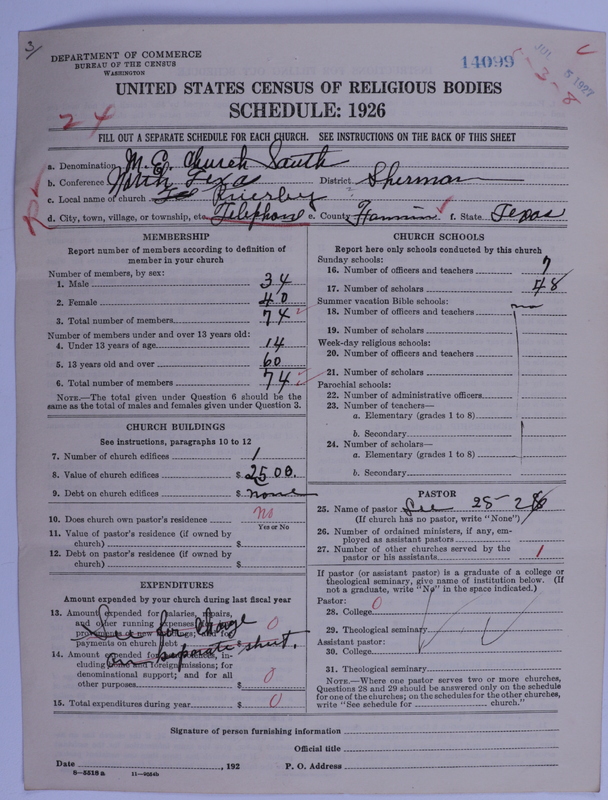 3/
DEPARTMENT OF COMMERCE
BUREAU OF THE CENSUS
WASHINGTON
14099
JUL 5 1927
-3-8
UNITED STATES CENSUS OF RELIGIOUS BODIES
SCHEDULE: 1926
24
FILL OUT A SEPARATE SCHEDULE FOR EACH CHURCH. SEE INSTRUCTIONS ON THE BACK OF THIS SHEET
a. Denomination M. E. Church South
b. Conference North Texas District Sherman
c. Local name of church
d. City, town, village, or township, etc. Telephone e. County Fannin f. State Texas
MEMBERSHIP
Report number of members according to definition of
member in your church
Number of members, by sex:
1. Male 34
2. Female 40
3. Total number of members 74
Number of members under and over 13 years old:
4. Under 13 years of age 14
5. 13 years old and over 60
6. Total number of members 74
NOTE.—The total given under Question 6 should be the
same as the total of males and females given under Question 3.
CHURCH BUILDINGS
See instructions, paragraphs 10 to 12
7. Number of church edifices 1
8. Value of church edifices $ 2500.
9. Debt on church edifices $ none
10. Does church own pastor's residence no
Yes or No
11. Value of pastor's residence (if owned by
church) $
12. Debt on pastor's residence (if owned by
church) $
EXPENDITURES
Amount expended by your church during last fiscal year
13. Amount expended for salaries, repairs,
and other running expenses; for
improvements or new buildings; and for
payments on church debt $ 0
See for charge
on separate sheet.
14. Amount expended for benevolences, in-
cluding home and foreign missions; for
denominational support; and for all
other purposes $ 0
15. Total expenditures during year $ 0
CHURCH SCHOOLS
Report here only schools conducted by this church
Sunday schools:
16. Number of officers and teachers 7
17. Number of scholars 48
Summer vacation Bible schools:
18. Number of officers and teachers no
19. Number of scholars
Week-day religious schools:
20. Number of officers and teachers
21. Number of scholars
Parochial schools:
22. Number of administrative officers
23. Number of teachers—
a. Elementary (grades 1 to 8)
b. Secondary
24. Number of scholars—
a. Elementary (grades 1 to 8)
b. Secondary
PASTOR
25. Name of pastor See 25-28
(If church has no pastor, write "None")
26. Number of ordained ministers, if any, em-
ployed as assistant pastors
27. Number of other churches served by the
pastor or his assistants 1
If pastor (or assistant pastor) is a graduate of a college or
theological seminary, give name of institution below. (If
not a graduate, write "No" in the space indicated.)
Pastor:
28. College 0
29. Theological seminary
Assistant pastor:
30. College
31. Theological seminary
NOTE.—Where one pastor serves two or more churches,
Questions 28 and 29 should be answered only on the schedule
for one of the churches; on the schedules for the other churches,
write "See schedule for church."
Signature of person furnishing information
Official title
Date , 192 P. O. Address
8—5518a 11—9034b